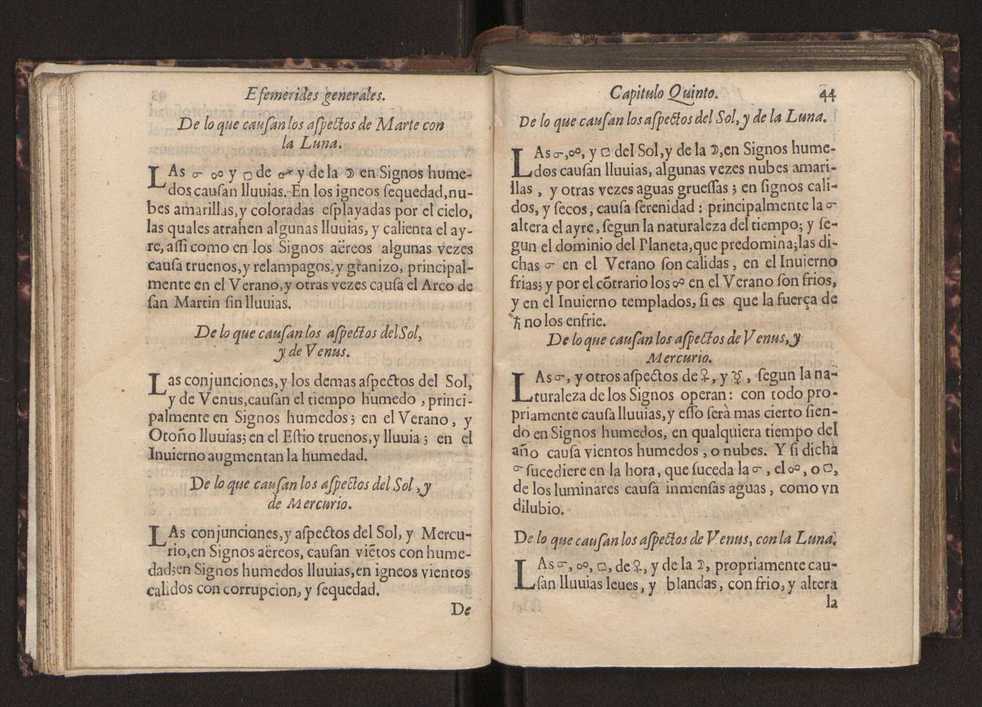 Efemerides generales.
De lo que cauſan los aſpectos de Marte con
la Luna.
LAs ☌ ☍ y □ de ♂ * y de la ☽ en Signos hume-
dos cauſan lluuias. En los igneos ſequedad, nu-
bes amarillas, y coloradas eſplayadas por el cielo,
las quales atrahen algunas lluuias, y calienta el ay-
re, aſſi como en los Signos aëreos algunas vezes
cauſa truenos, y relampagos, y granizo, principal-
mente en el Verano, y otras vezes cauſa el Arco de
ſan Martin ſin lluuias.
De lo que cauſan los aſpectos del Sol,
y de Venus.
Las conjunciones, y los demas aſpectos del Sol,
y de Venus, cauſan el tiempo humedo, princi-
palmente en Signos humedos; en el Verano, y
Otoño lluuias; en el Eſtio truenos, y lluuia; en el
Inuierno augmentan la humedad.
De lo que cauſan los aſpectos del Sol, y
de Mercurio.
LAs conjunciones, y aſpectos del Sol, y Mercu-
rio, en Signos aëreos, cauſan viẽtos con hume-
dad; en Signos humedos lluuias, en igneos vientos
calidos con corrupcion, y ſequedad.
De
Capitulo Quinto. 44
De lo que cauſan los aſpectos del Sol, y de la Luna.
LAs ☌, ☍, y □ del Sol, y de la ☽, en Signos hume-
dos cauſan lluuias, algunas vezes nubes amari-
llas, y otras vezes aguas grueſſas; en ſignos cali-
dos, y ſecos, cauſa ſerenidad: principalmente la ☌
altera el ayre, ſegun la naturaleza del tiempo; y ſe-
gun el dominio del Planeta, que predomina; las di-
chas ☌ en el Verano ſon calidas, en el Inuierno
frias; y por el cõtrario los ☍ en el Verano ſon frios,
y en el Inuierno templados, ſi es que la fuerça de
♄ no los enfrie.
De lo que cauſan los aſpectos de Venus, y
Mercurio.
LAs ☌, y otros aſpectos de ♀, y ☿, ſegun la na-
turaleza de los Signos operan: con todo pro-
priamente cauſa lluuias, y eſſo ſerà mas cierto ſien-
do en Signos humedos, en qualquiera tiempo del
año cauſa vientos humedos, o nubes. Y ſi dicha
☌ ſucediere en la hora, que ſuceda la ☌, el ☍, o □,
de los luminares cauſa inmenſas aguas, como vn
dilubio.
De lo que cauſan los aſpectos de Venus, con la Luna.
LAs ☌, ☍, □, de ♀, y de la ☽, propriamente cau-
ſan lluuias leues, y blandas, con frio, y altera
la